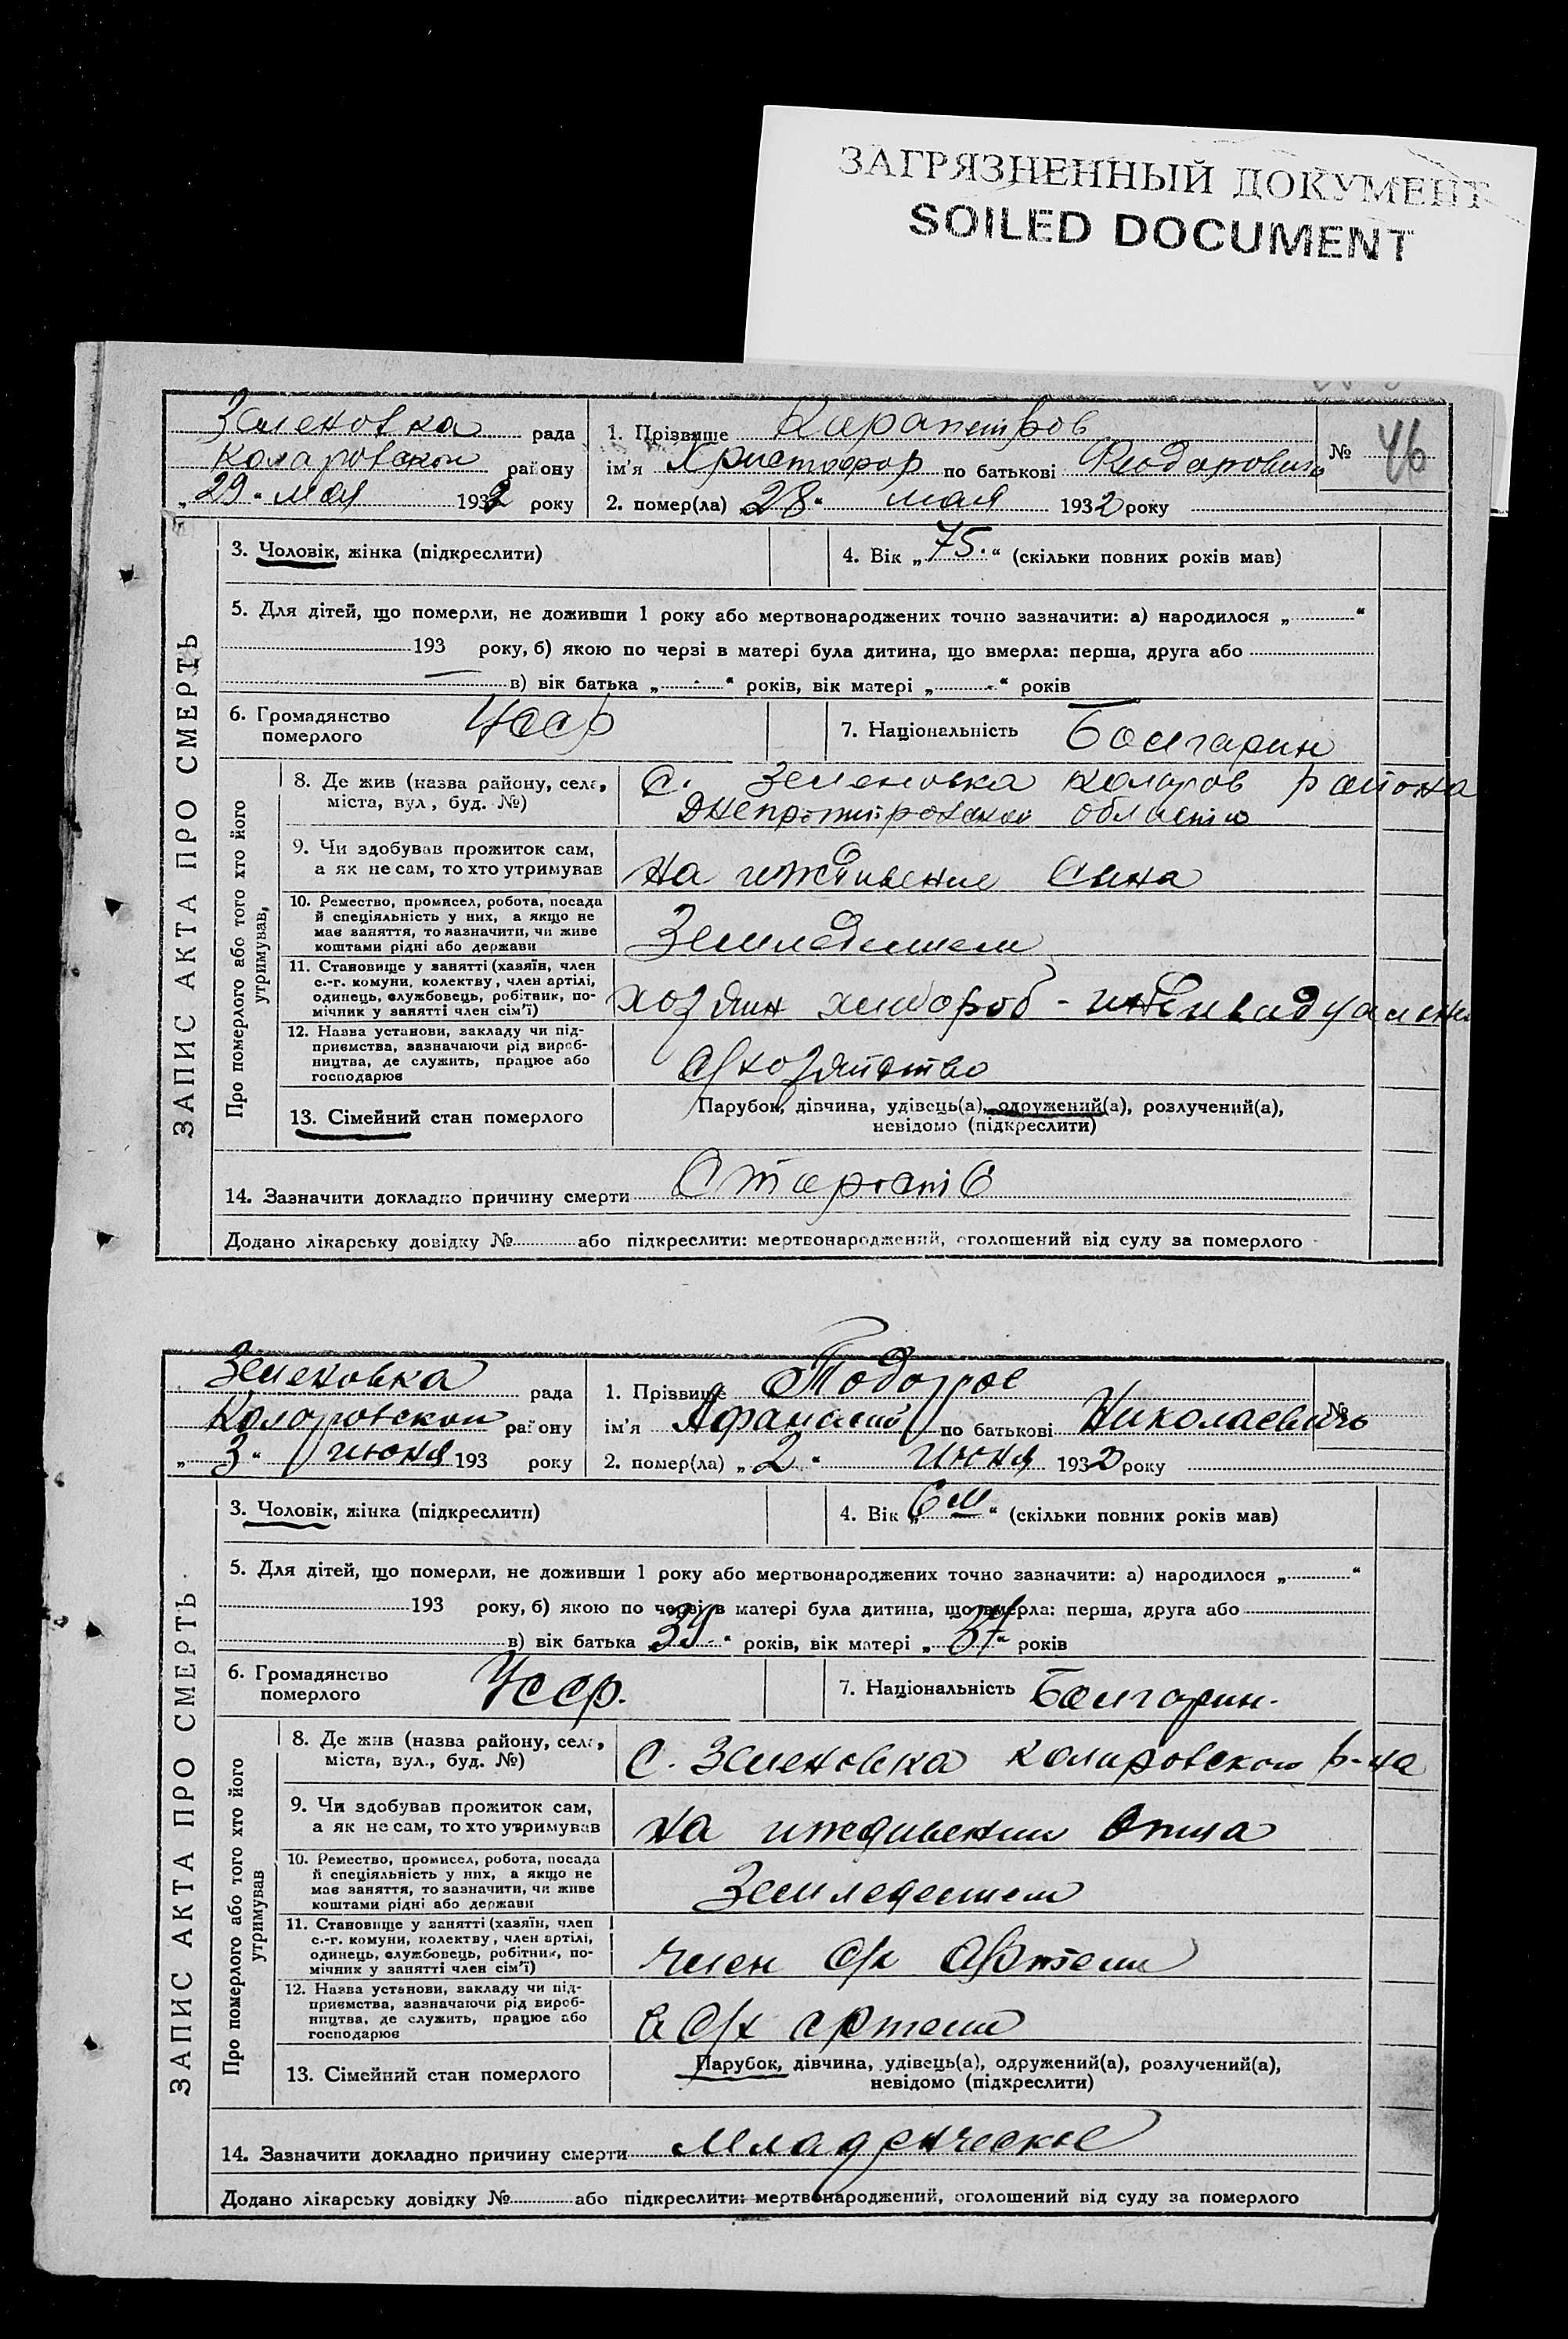 ЗАГРЯЗНЕННЫЙ ДОКУМЕНТ
SOILED DOCUMENT
ЗАПИС АКТА ПРО СМЕРТЬ
Зеленовка рада
Коларовской району
„29“ мая 1932 року
1. Прізвище Карапетров
ім'я Христофор по батькові Феодорович
2. помер(ла) „28“ мая 1932 року
№ 46
3. Чоловік, жінка (підкреслити)
4. Вік „75.“ (скільки повних років мав)
5. Для дітей, що померли, не доживши 1 року або мертвонароджених точно зазначити: а) народилося „ “
193 року, б) якою по черзі в матері була дитина, що вмерла: перша, друга або
в) вік батька „ - “ років, вік матері „ - “ років
6. Громадянство
померлого
Усср
7. Національність Болгарин
Про померлого або того хто його
утримував,
8. Де жив (назва району, села,
міста, вул, буд. №)
С. Зеленовка Коларов района
Днепропетровской области
9. Чи здобував прожиток сам,
а як не сам, то хто утримував
На иждивение Сина
10. Ремество, промисел, робота, посада
й спеціяльність у них, а якщо не
має заняття, то зазначити, чи живе
коштами рідні або держави
Земледелием
11. Становище у занятті (хазяїн, член
с.-г. комуни, колективу, член артілі,
одинець, службовець, робітник, по-
мічник у занятті член сім'ї)
хозяин хлебороб -
12. Назва установи, закладу чи під-
приємства, зазначаючи рід вироб-
ництва, де служить, працює або
господарює
с/хозяйство
13. Сімейний стан померлого
Парубок, дівчина, удівець(а), одружений(а), розлучений(а),
невідомо (підкреслити)
14. Зазначити докладно причину смерти Старость
Додано лікарську довідку № або підкреслити: мертвонароджений, оголошений від суду за померлого
ЗАПИС АКТА ПРО СМЕРТЬ
Зеленовка рада
Коларовской району
„3“ июня 193 року
1. Прізвище Тодоров
ім'я Афанасий по батькові Николаевичь
2. помер(ла) „2“ июня 1932 року
№
3. Чоловік, жінка (підкреслити)
4. Вік „6 м“ (скільки повних років мав)
5. Для дітей, що померли, не доживши 1 року або мертвонароджених точно зазначити: а) народилося „ “
193 року, б) якою по черзі в матері була дитина, що вмерла: перша, друга або
в) вік батька „39“ років, вік матері „37“ років
6. Громадянство
померлого
Усср.
7. Національність Болгарин.
Про померлого або того хто його
утримував
8. Де жив (назва району, села,
міста, вул., буд. №)
С. Зеленовка Коларовского р-на
9. Чи здобував прожиток сам,
а як не сам, то хто утримував
На иждивении Отца
10. Ремество, промисел, робота, посада
й спеціяльність у них, а якщо не
має заняття, то зазначити, чи живе
коштами рідні або держави
Земледелием
11. Становище у занятті (хазяїн, член
с.-г. комуни, колективу, член артілі,
одинець, службовець, робітник, по-
мічник у занятті член сім'ї)
член с/х Артели
12. Назва установи, закладу чи під-
приємства, зазначаючи рід вироб-
ництва, де служить, працює або
господарює
в с/х артели
13. Сімейний стан померлого
Парубок, дівчина, удівець(а), одружений(а), розлучений(а),
невідомо (підкреслити)
14. Зазначити докладно причину смерти Младенческое
Додано лікарську довідку № або підкреслити: мертвонароджений, оголошений від суду за померлого